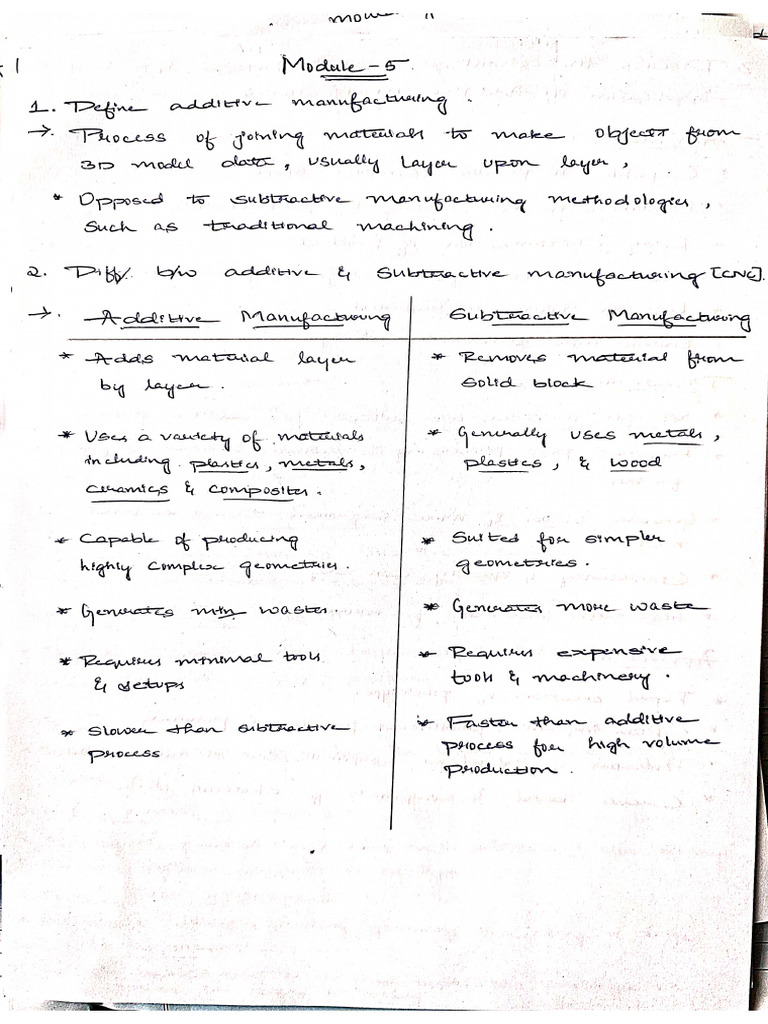 Module-5.
1. Define additive manufacturing.
→. Process of joining materials to make objects from
3D model data, usually layer upon layer,
* Opposed to subtractive manufacturing methodologies,
such as traditional machining.
2. Diff/ b/w additive & subtractive manufacturing [CNC].
→. Additive Manufacturing
* Adds material layer
by layer.
* Uses a variety of materials
including plastics, metals,
ceramics & composites.
* Capable of producing
highly complex geometries.
* Generates min waste.
* Requires minimal tools
& setups
* Slower than subtractive
process
Subtractive Manufacturing
* Removes material from
solid block
* Generally uses metals,
plastics, & wood
* Suited for simpler
geometries.
* Generates more waste
* Requires expensive
tools & machinery.
* Faster than additive
process for high volume
production.